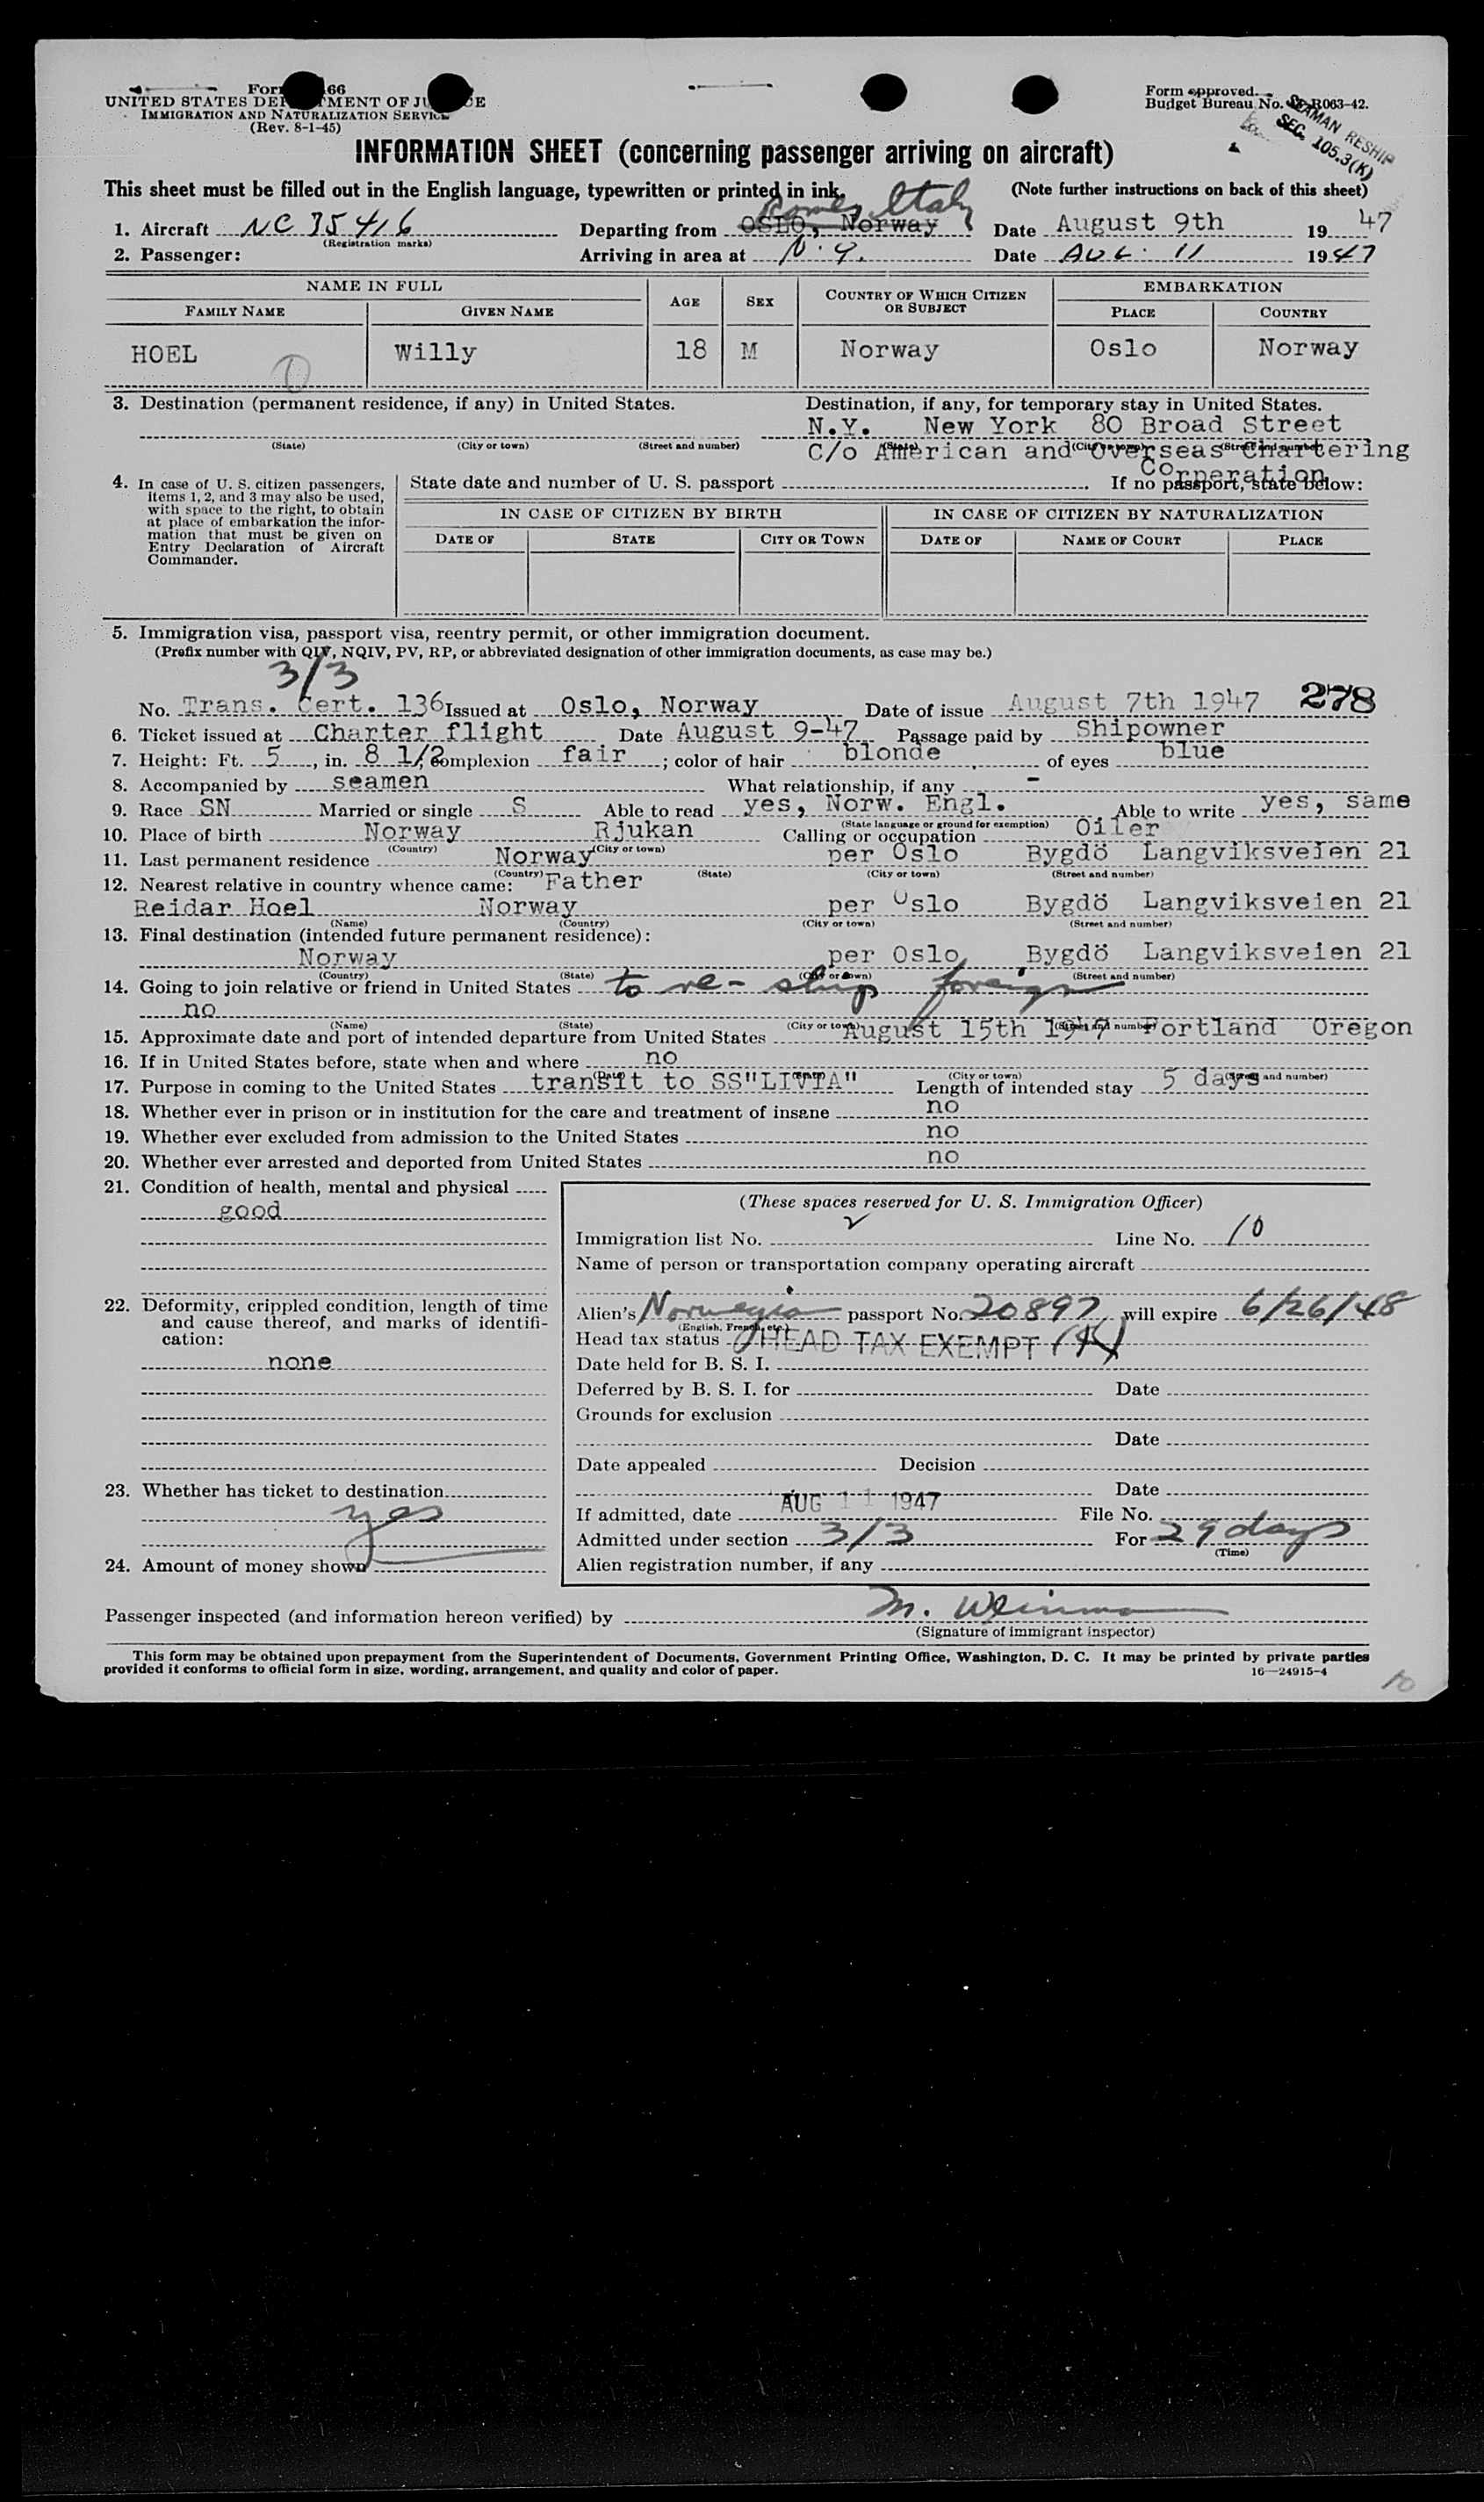 Form 66
UNITED STATES DEPARTMENT OF JUSTICE
IMMIGRATION AND NATURALIZATION SERVICE
(Rev. 8-1-45)
Form approved.
Budget Bureau No. R063-42.
SEAMAN RESHIP
SEC. 105.3(K)
INFORMATION SHEET (concerning passenger arriving on aircraft)
This sheet must be filled out in the English language, typewritten or printed in ink. (Note further instructions on back of this sheet)
Italy
1. Aircraft NC 35416 Departing from OSLO, Norway Date August 9th 1947
(Registration marks)
2. Passenger: Arriving in area at N.Y. Date AUG. 11 1947
NAME IN FULL AGE SEX COUNTRY OF WHICH CITIZEN OR SUBJECT EMBARKATION
FAMILY NAME GIVEN NAME PLACE COUNTRY
HOEL Willy 18 M Norway Oslo Norway
3. Destination (permanent residence, if any) in United States. Destination, if any, for temporary stay in United States.
N.Y. New York 80 Broad Street
(State) (City or town) (Street and number) (State) (City or town) (Street and number)
C/o American and Overseas Chartering
Corperation
4. In case of U. S. citizen passengers, items 1, 2, and 3 may also be used, with space to the right, to obtain at place of embarkation the information that must be given on Entry Declaration of Aircraft Commander.
State date and number of U. S. passport If no passport, state below:
IN CASE OF CITIZEN BY BIRTH IN CASE OF CITIZEN BY NATURALIZATION
DATE OF STATE CITY OR TOWN DATE OF NAME OF COURT PLACE
5. Immigration visa, passport visa, reentry permit, or other immigration document.
(Prefix number with QIV, NQIV, PV, RP, or abbreviated designation of other immigration documents, as case may be.)
3/3
No. Trans. Cert. 136 Issued at Oslo, Norway Date of issue August 7th 1947 278
6. Ticket issued at Charter flight Date August 9-47 Passage paid by Shipowner
7. Height: Ft. 5, in. 8 1/2 Complexion fair; color of hair blonde of eyes blue
8. Accompanied by seamen What relationship, if any -
9. Race SN Married or single S Able to read yes, Norw. Engl. Able to write yes, same
(State language or ground for exemption)
10. Place of birth Norway Rjukan Calling or occupation Oiler
(Country) (City or town)
11. Last permanent residence Norway per Oslo Bygdö Langviksveien 21
(Country) (State) (City or town) (Street and number)
12. Nearest relative in country whence came: Father
Reidar Hoel Norway per Oslo Bygdö Langviksveien 21
(Name) (Country) (City or town) (Street and number)
13. Final destination (intended future permanent residence):
Norway per Oslo Bygdö Langviksveien 21
(Country) (State) (City or town) (Street and number)
14. Going to join relative or friend in United States to re-ship foreign
no
(Name) (State) (City or town) (Street and number)
15. Approximate date and port of intended departure from United States August 15th 1947 Portland Oregon
16. If in United States before, state when and where no
(Date) (State) (City or town) (Street and number)
17. Purpose in coming to the United States transit to SS"LIVIA" Length of intended stay 5 days
18. Whether ever in prison or in institution for the care and treatment of insane no
19. Whether ever excluded from admission to the United States no
20. Whether ever arrested and deported from United States no
21. Condition of health, mental and physical
good
22. Deformity, crippled condition, length of time and cause thereof, and marks of identification:
none
23. Whether has ticket to destination
yes
24. Amount of money shown
(These spaces reserved for U. S. Immigration Officer)
Immigration list No. 2 Line No. 10
Name of person or transportation company operating aircraft
Alien's Norwegia passport No. 20897 will expire 6/26/48
(English, French, etc.)
Head tax status HEAD TAX EXEMPT (K)
Date held for B. S. I.
Deferred by B. S. I. for Date
Grounds for exclusion
Date
Date appealed Decision
Date
If admitted, date AUG 11 1947 File No.
Admitted under section 3/3 For 29 days
(Time)
Alien registration number, if any
Passenger inspected (and information hereon verified) by M. Weinma
(Signature of immigrant inspector)
This form may be obtained upon prepayment from the Superintendent of Documents, Government Printing Office, Washington, D. C. It may be printed by private parties
provided it conforms to official form in size, wording, arrangement, and quality and color of paper. 16—24915-4
10